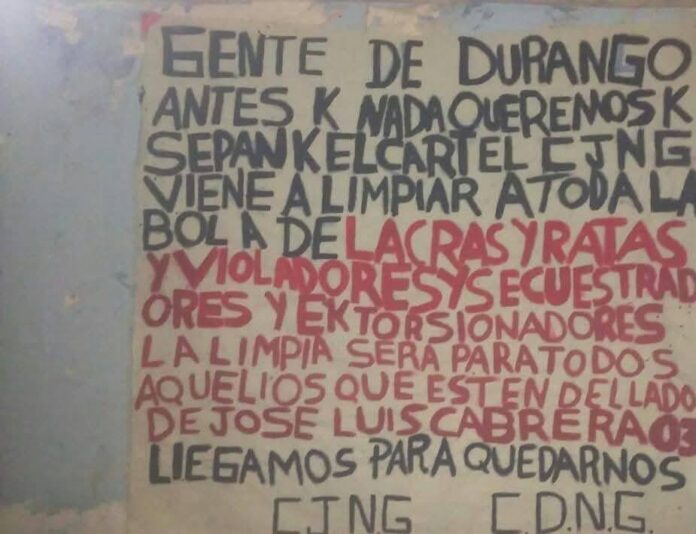 GENTE DE DURANGO
ANTES K NADA QUEREMOS K
SEPAN K EL CARTEL CJNG
VIENE A LIMPIAR A TODA LA
BOLA DE LACRAS Y RATAS
Y VIOLADORES Y SECUESTRAD
ORES Y EKTORSIONADORES
LA LIMPIA SERA PARA TODOS
AQUELIOS QUE ESTEN DELLADO
DE JOSE LUIS CABRERA 03
LIEGAMOS PARA QUEDARNOS
CJNG C.D.N.G.